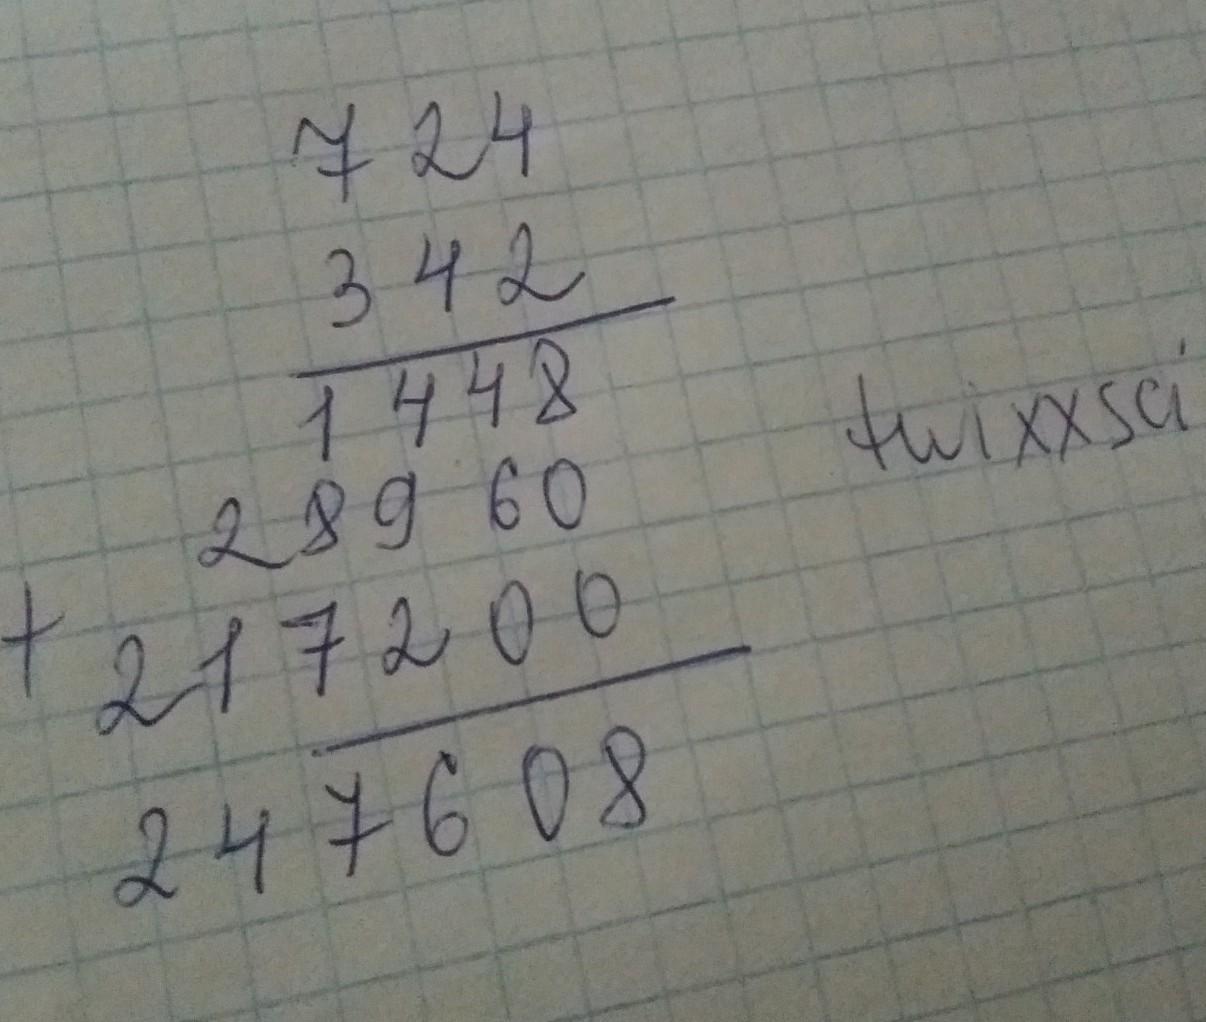 724
342
1448
28960
+ 217200
247608
twixxsci